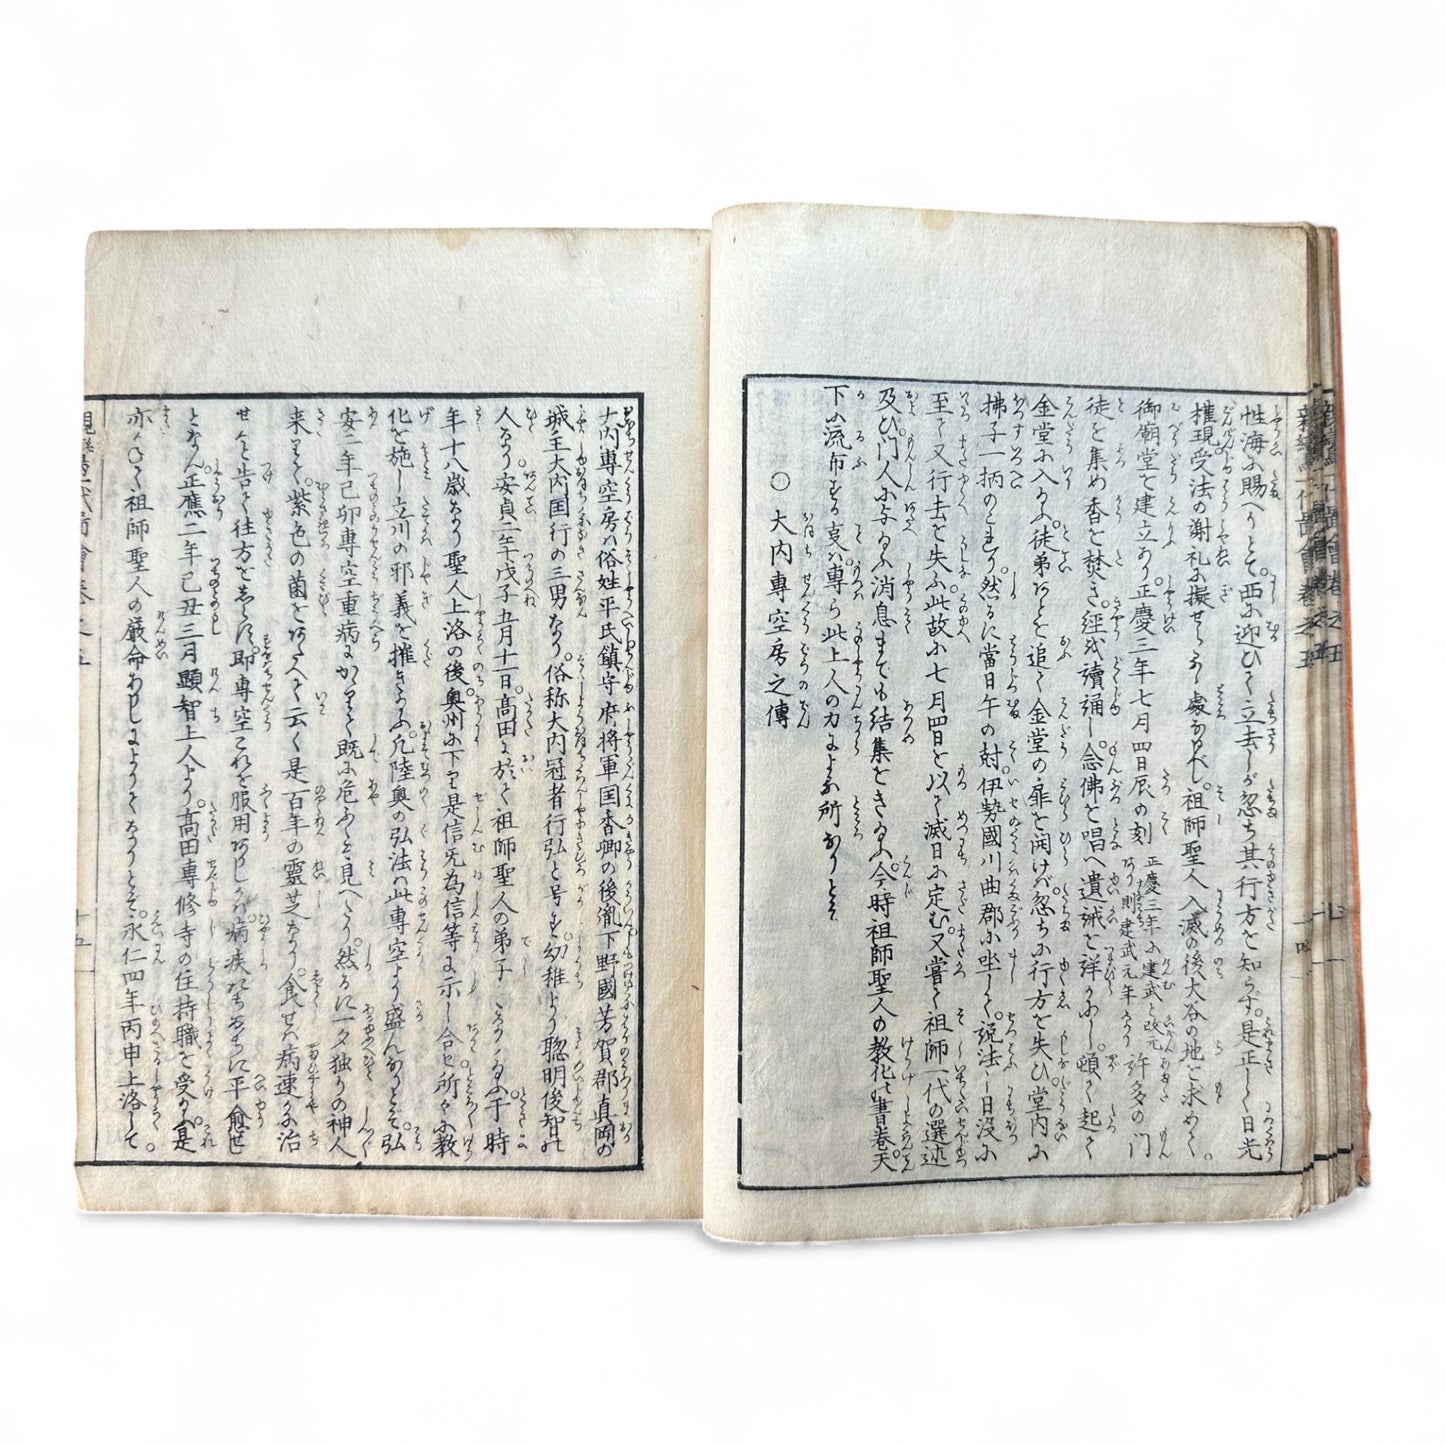 性海に賜へりとて。西に迎ひて立去しが忽ち其行方を知らず。是正しく日光
権現受法の謝礼に擬せらるゝ處なるべし。祖師聖人入滅の後大谷の地を求めて。
御廟堂を建立あり。正慶三年七月四日辰の刻
正慶三年に建武と改元
則建武元年
許多の門
徒を集め香を焚き。経を讀誦し念佛を唱へ遺誡を詳にし。頓て起て
金堂に入らる。徒弟あとを追て金堂の扉を開けば。忽ちに行方を失ひ堂内に
拂子一柄のこれり。然るに當日午の尅伊勢國川曲郡に坐して。説法し日没に
至て又行去を失ふ。此故に七月四日を以て滅日に定む。又嘗て祖師一代の選述
及び。門人に与る消息まても結集をき給ふ。今時祖師聖人の教化の書巻天
下に流布する哀。専ら此上人の力による所なりとぞ
○大内専空房之傳
大内専空房ハ俗姓平氏鎮守府将軍国香卿の後胤下野國芳賀郡真岡の
城主大内国行の三男なり。俗称大内冠者行弘と号す。幼稚より聡明後智の
人なり安貞二年戊子五月十一日。高田に於て祖師聖人の弟子となり給ふ。于時
年十八歳なり聖人上洛の後。奥州に下り是信无為信等に示し合せ所々に教
化を施し立川の邪義を摧き給ふ。凡陸奥の弘法ハ此専空より盛んなりとぞ。弘
安二年己卯専空重病にかゝりて既に危ふく見へたり。然るに一夕独りの神人
来りて。紫色の菌をあたへて云く是一百年の靈芝なり。食せバ病速かに治
せんと告て往方をしらず。即専空これを服用ありしかバ。病疾たちまちに平愈せ
となん。正應二年己丑三月顕智上人より。高田専修寺の住持職を受らる。是
亦かねて祖師聖人の厳命ありしによりてなりとぞ。永仁四年丙申上洛して。
親鸞一代図會巻之五
十五